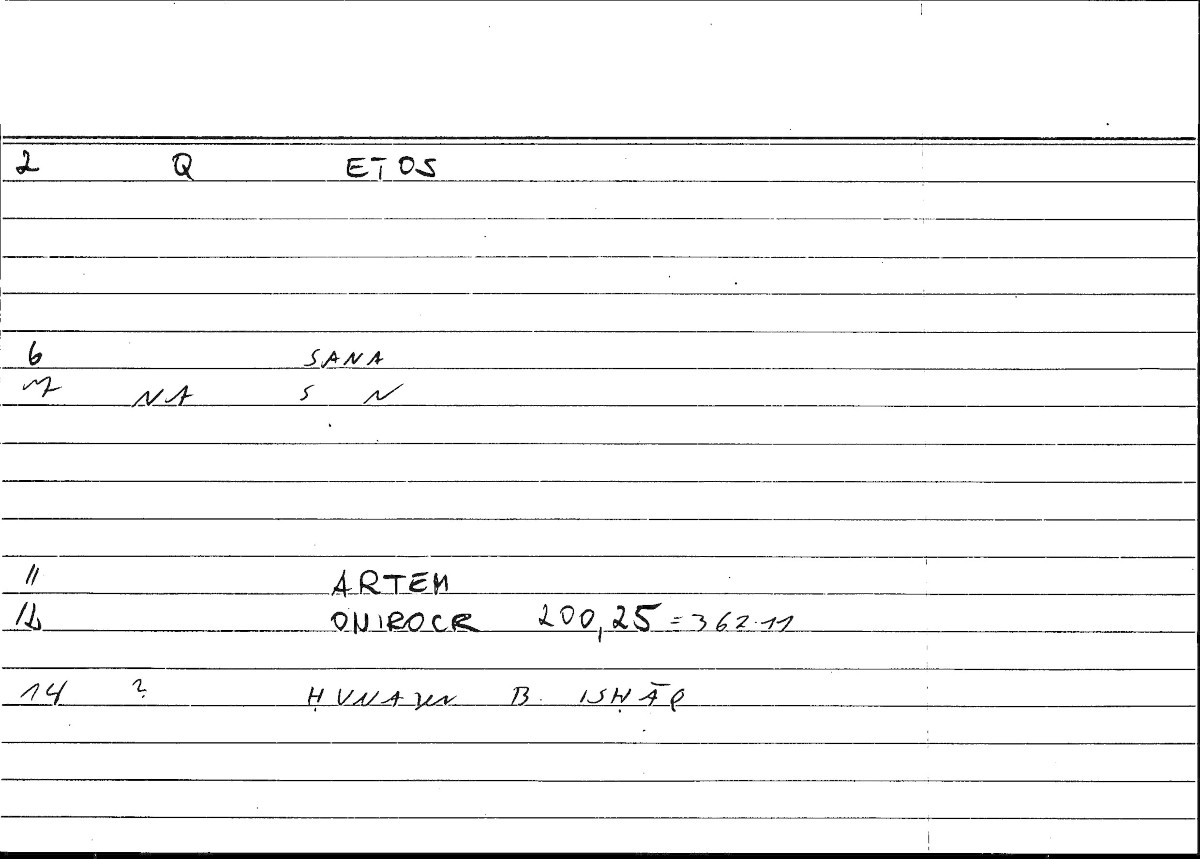 2 Q ETOS
6 SANA
7 NA S N
11 ARTEM
12 ONIROCR 200,25 = 362.11
14 ? ḤUNAYN B. ISḤĀQ